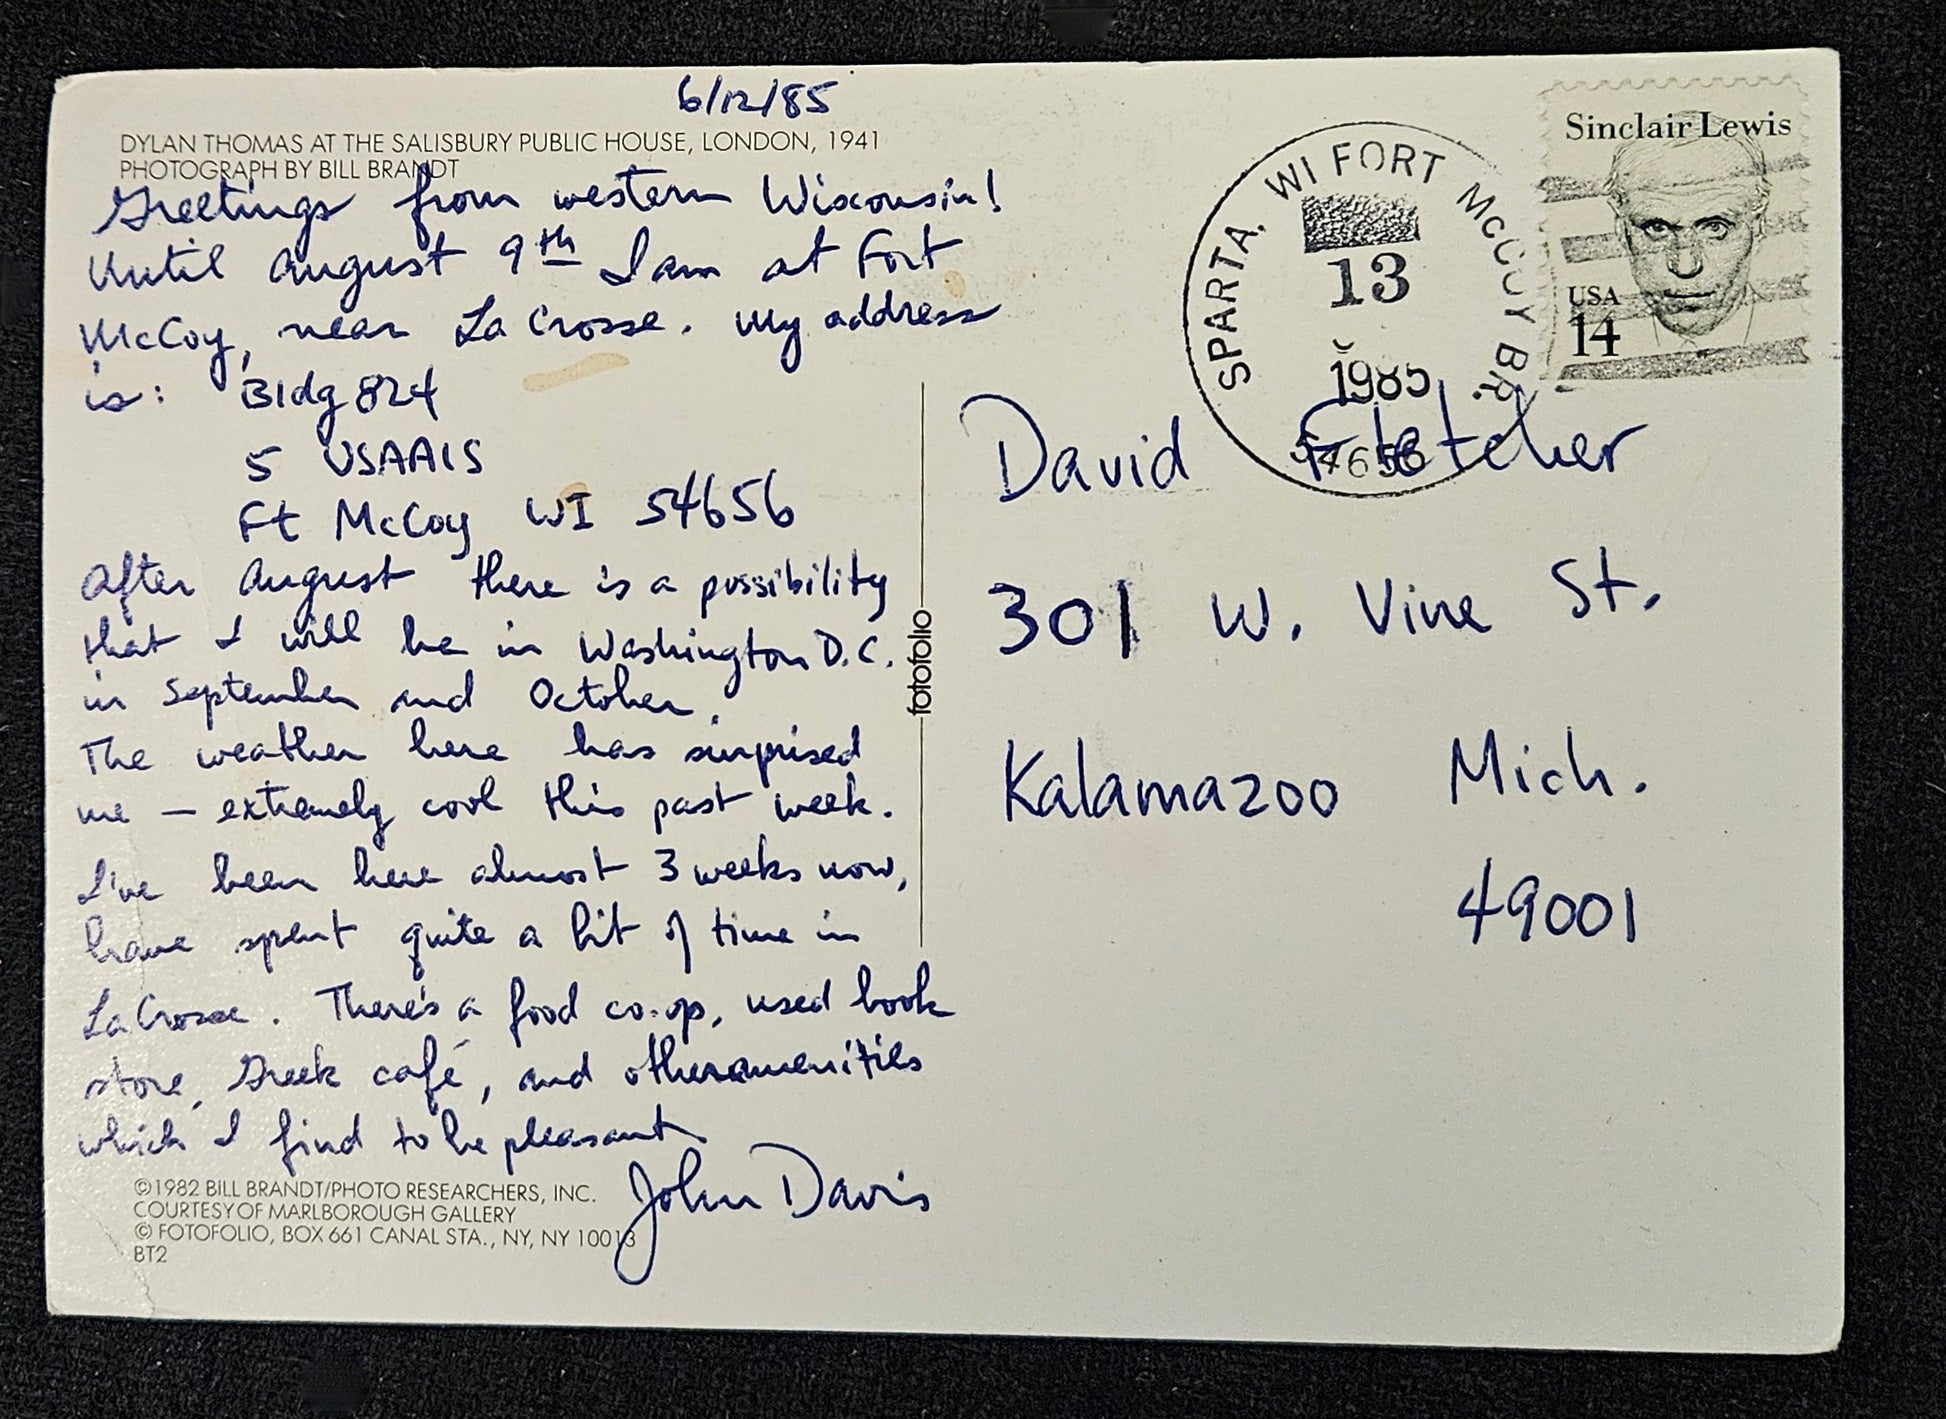 6/12/85
DYLAN THOMAS AT THE SALISBURY PUBLIC HOUSE, LONDON, 1941
PHOTOGRAPH BY BILL BRANDT
Greetings from western Wisconsin!
Until August 9th I am at Fort
McCoy, near La Crosse. My address
is: Bldg 824
5 USAAIS
Ft McCoy WI 54656
After August there is a possibility
that I will be in Washington D.C.
in September and October.
The weather here has surprised
me — extremely cool this past week.
I've been here almost 3 weeks now,
have spent quite a bit of time in
La Crosse. There's a food co-op, used book
store, Greek café, and other amenities
which I find to be pleasant
John Davis
©1982 BILL BRANDT/PHOTO RESEARCHERS, INC.
COURTESY OF MARLBOROUGH GALLERY
© FOTOFOLIO, BOX 661 CANAL STA., NY, NY 10013
BT2
fotofolio
SPARTA, WI FORT McCOY BR.
13
1985
54656
Sinclair Lewis
USA
14
David Fletcher
301 W. Vine St.
Kalamazoo Mich.
49001